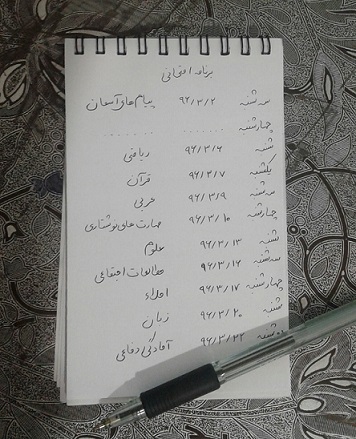 برنامه امتحانی
سه شنبه ۹۶/۳/۲ پیام های آسمان
چهارشنبه ........ ........
شنبه ۹۶/۳/۶ ریاضی
یکشنبه ۹۶/۳/۷ قرآن
سه شنبه ۹۶/۳/۹ عربی
چهارشنبه ۹۶/۳/۱۰ مهارت های نوشتاری
شنبه ۹۶/۳/۱۳ علوم
سه شنبه ۹۶/۳/۱۶ مطالعات اجتماعی
چهارشنبه ۹۶/۳/۱۷ املاء
شنبه ۹۶/۳/۲۰ زبان
شنبه ۹۶/۳/۲۳ آمادگی دفاعی